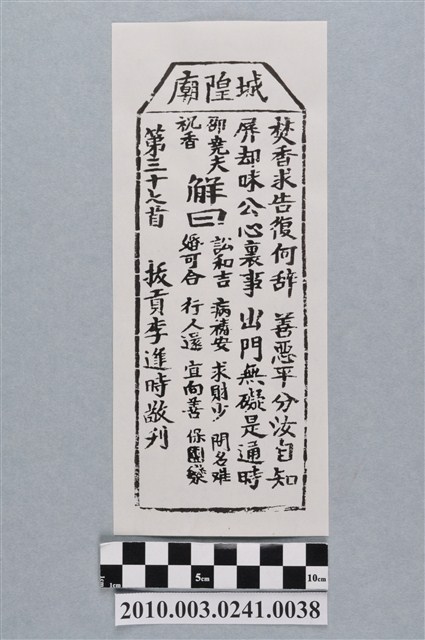 城隍廟
焚香求告復何辞 善惡平分汝自知
屏却昧公心裏事 出門無礙是通時
邵堯夫祝香
解曰
訟和吉 病禱安 求財少 問名难
婚可合 行人還 宜向善 保團變
第三十七首 拔貢李進時敬刋
1cm 5cm 10cm
2010.003.0241.0038